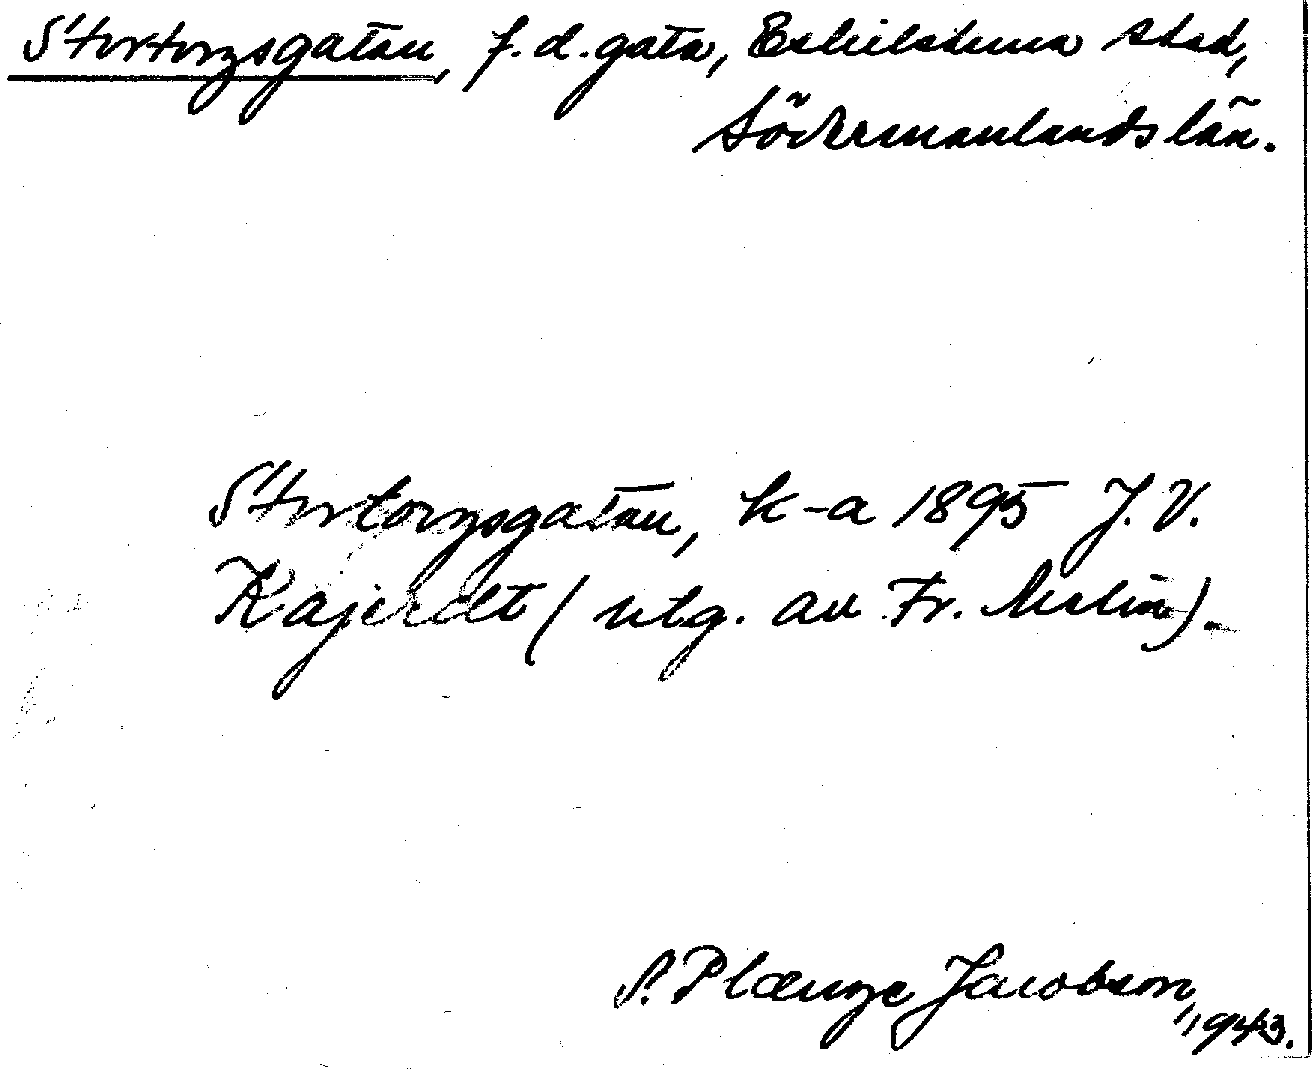 Stortorgsgatan, f.d. gata, Eskilstuna stad,
Södermanlands län.
Stortorgsgatan, k-a 1895 J.V.
Kajerdt (utg. av Fr. Melin).
S. Plænge Jacobson,
1943.